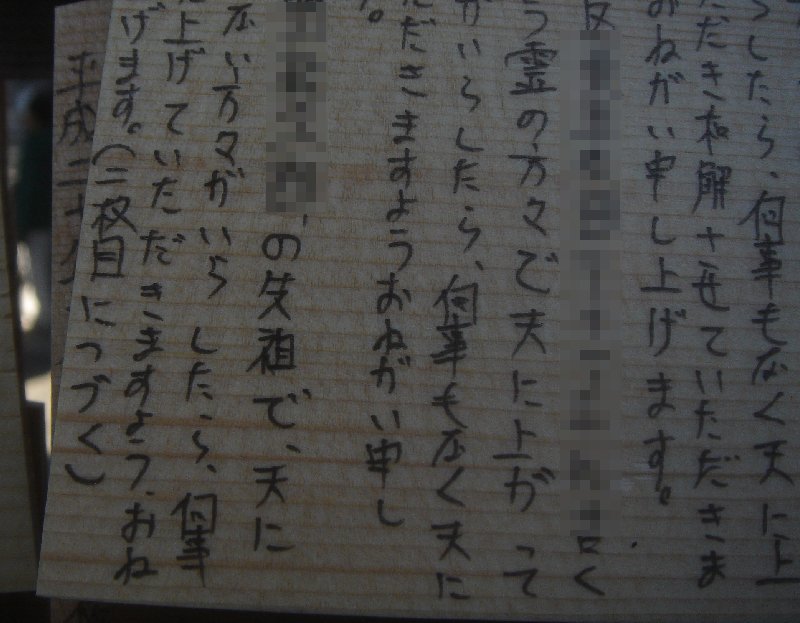 らしたら、何事もなく天に上
だき和解させていただきま
おねがい申し上げます。
く
う霊の方々で天に上がって
がいらしたら、何事もなく天に
だきますようおねがい申し
す。
の失祖で、天に
ない方々がいらしたら、何事
上げていただきますよう、おね
げます。(二枚目につづく)
平成二十